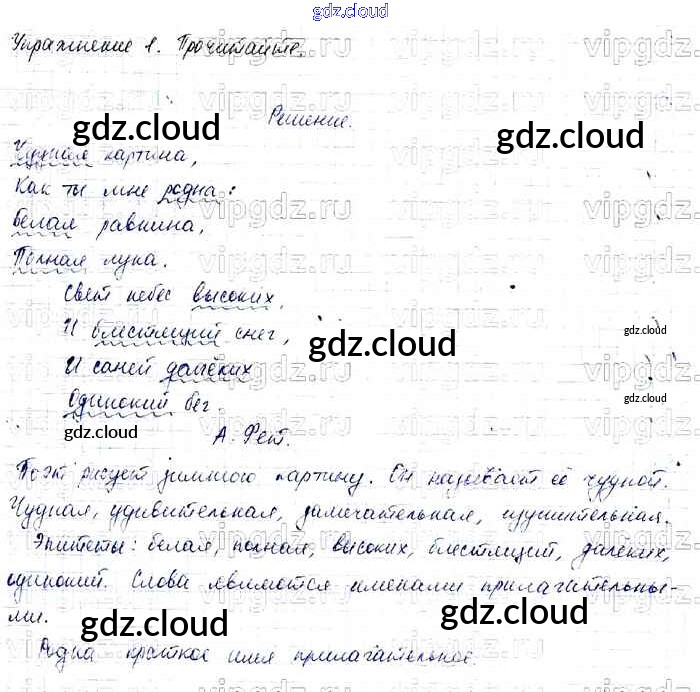 gdz.cloud
Упражнение 1. Прочитайте.
Решение.
gdz.cloud
gdz.cloud
Чудная картина,
Как ты мне родна:
Белая равнина,
Полная луна.
Свет небес высоких,
И блестящий снег,
gdz.cloud
gdz.cloud
И саней далёких
Одинокий бег.
gdz.cloud
gdz.cloud
А. Фет.
Поэт рисует зимнюю картину. Он называет её чудной.
Чудная, удивительная, замечательная, изумительная.
Эпитеты: белая, полная, высоких, блестящий, далёких,
одинокий. Слова являются именами прилагательны-
ми.
gdz.cloud
gdz.cloud
Родна краткое имя прилагательное.
vipgdz.ru